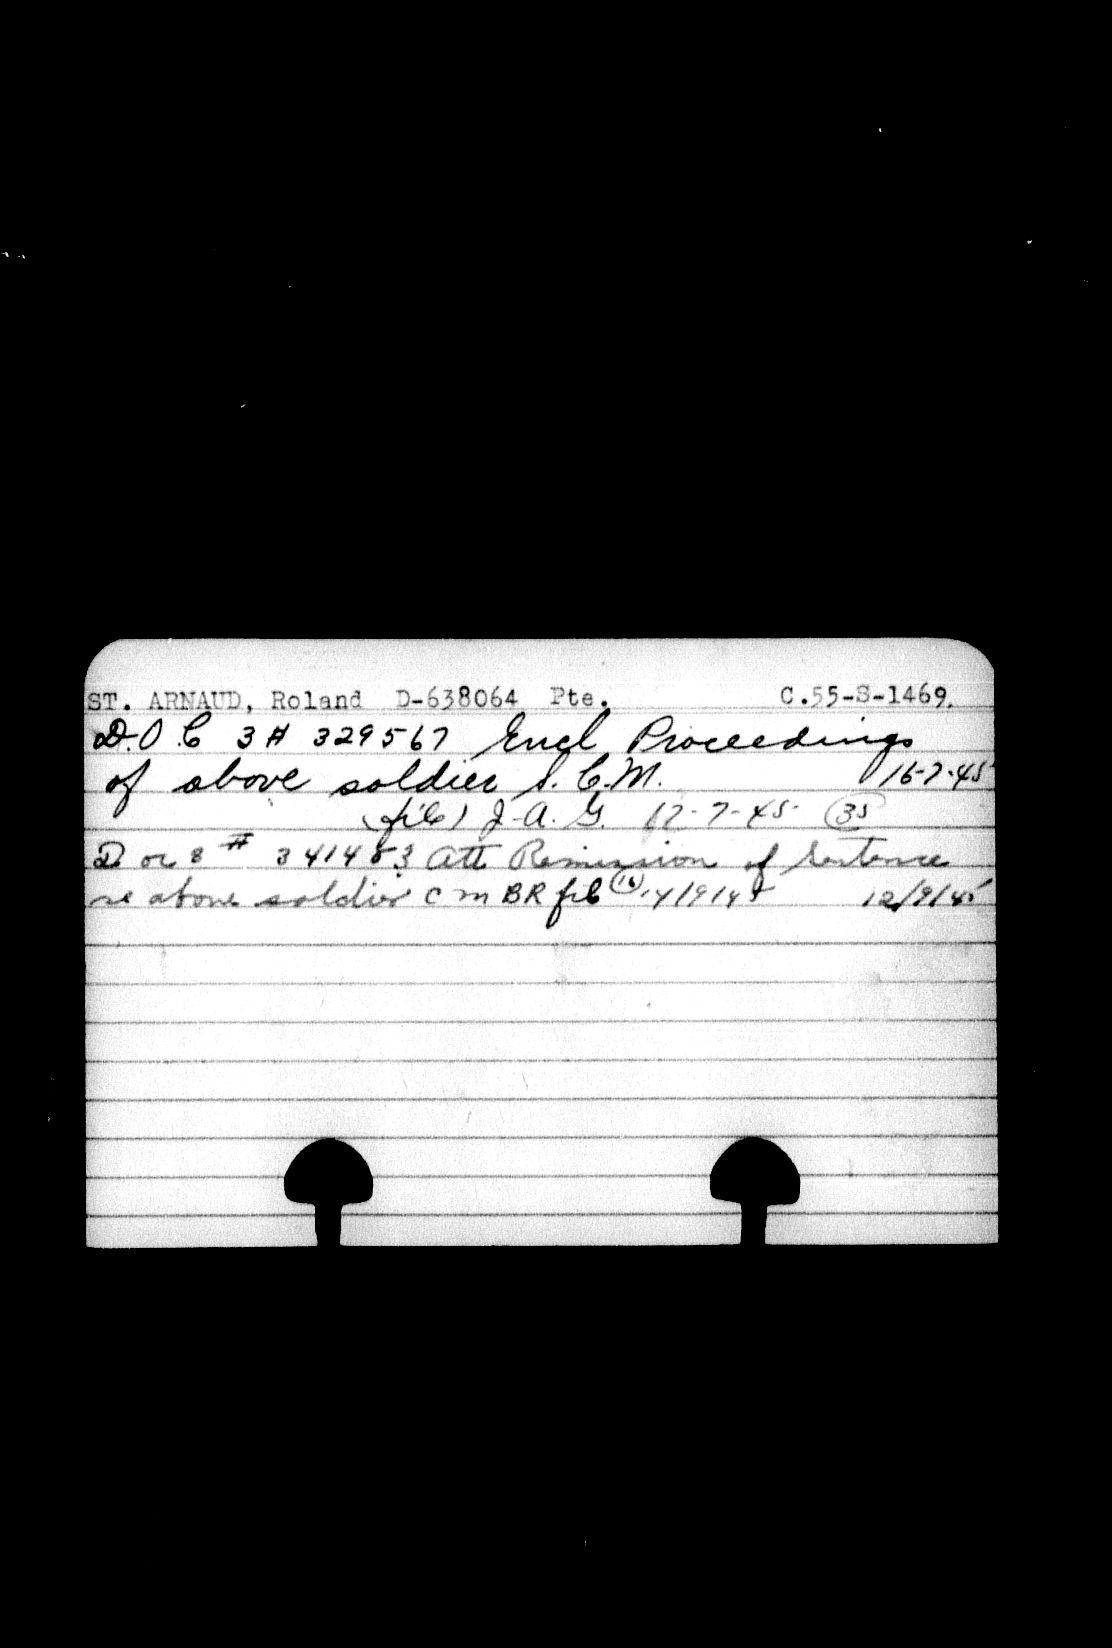 ST. ARNAUD, Roland D-638064 Pte. C.55-S-1469.
D.O.C 3 # 329567 Encl Proceedings
of above soldier S.C.M. 16-7-45
(file) J-A.G. 17-7-45 35
D oc 3 # 341453 Att Remission of Sentence
re above soldier C M BR file 16 14/9/45 12/9/45